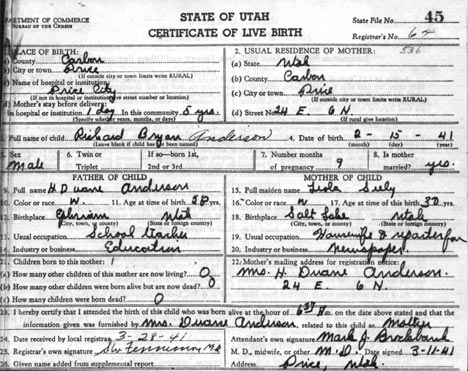 DEPARTMENT OF COMMERCE
BUREAU OF THE CENSUS
STATE OF UTAH
CERTIFICATE OF LIVE BIRTH
State File No. 45
Registrar's No. 64
PLACE OF BIRTH:
(a) County Carbon
(b) City or town Price
(If outside city or town limits write RURAL)
(c) Name of hospital or institution:
Price City
(If not in hospital or institution give street number or location)
(d) Mother's stay before delivery:
In hospital or institution 1 day In this community 5 yrs.
(Specify whether years, months, or days)
2. USUAL RESIDENCE OF MOTHER: 536
(a) State Utah
(b) County Carbon
(c) City or town Price
(If outside city or town limits write RURAL)
(d) Street No. 24 E. 6 N
(If rural give location)
3. Full name of child Richard Bryan Anderson
(Leave blank if child has not been named)
4. Date of birth 2-15-41
(month) (day) (year)
5. Sex Male
6. Twin or Triplet
If so—born 1st, 2nd or 3rd
7. Number months of pregnancy 9
8. Is mother married? yes.
FATHER OF CHILD
9. Full name H Duane Anderson
10. Color or race W. 11. Age at time of birth 38 yrs.
12. Birthplace Ephraim Utah
(City, town, or county) (State or foreign country)
13. Usual occupation School Teacher
14. Industry or business Education
MOTHER OF CHILD
15. Full maiden name Seely
16. Color or race W. 17. Age at time of birth 32 yrs.
18. Birthplace Salt Lake Utah
(City, town, or county) (State or foreign country)
19. Usual occupation Housewife & reporter for
20. Industry or business newspaper.
21. Children born to this mother: 1
(a) How many other children of this mother are now living? 0
(b) How many other children were born alive but are now dead? 0
(c) How many children were born dead? 0
22. Mother's mailing address for registration notice:
Mrs. H. Duane Anderson
24 E. 6 N.
23. I hereby certify that I attended the birth of this child who was born alive at the hour of 637 m. on the date above stated and that the
information given was furnished by Mrs. Duane Anderson, related to this child as mother
24. Date received by local registrar 3-28-41
25. Registrar's own signature
26. Given name added from supplemental report
Attendant's own signature Mark J. Brockbank
M. D., midwife, or other M.D. Date signed 3-11-41
Address Price, Utah.